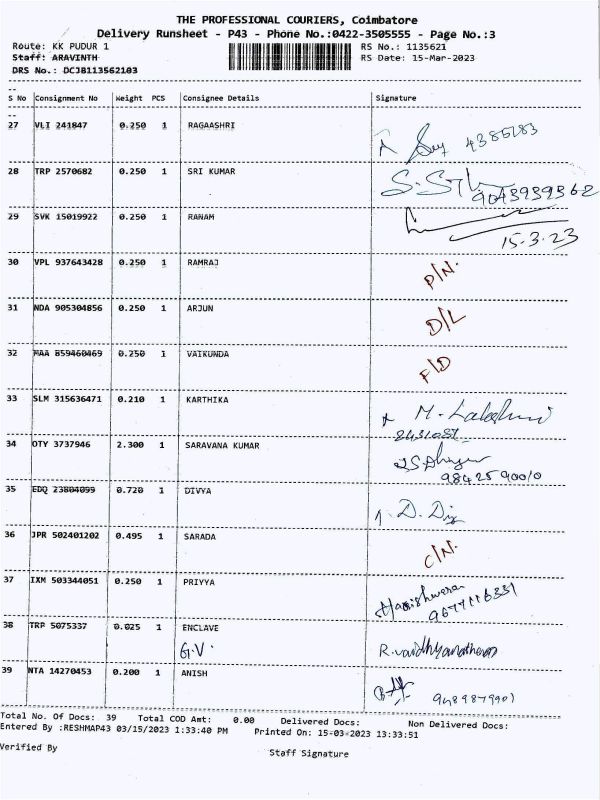 THE PROFESSIONAL COURIERS, Coimbatore
Delivery Runsheet - P43 - Phone No.:0422-3505555 - Page No.:3
Route: KK PUDUR 1 RS No.: 1135621
Staff: ARAVINTH RS Date: 15-Mar-2023
DRS No.: DCJB113562103
S No Consignment No Weight PCS Consignee Details Signature
27 VLI 241847 0.250 1 RAGAASHRI
28 TRP 2570682 0.250 1 SRI KUMAR
9043939362
29 SVK 15019922 0.250 1 RANAM
15-3-23
30 VPL 937643428 0.250 1 RAMRAJ P/N.
31 NDA 905304856 0.250 1 ARJUN D/L
32 MAA 859460469 0.250 1 VAIKUNDA F/D
33 SLM 315636471 0.210 1 KARTHIKA M. Lakshmi
34 OTY 3737946 2.300 1 SARAVANA KUMAR
9842590010
35 EDQ 23804099 0.720 1 DIVYA
36 JPR 502401202 0.495 1 SARADA C/N.
37 IXM 503344051 0.250 1 PRIYYA
9677116331
38 TRP 5075337 0.025 1 ENCLAVE
G.V. R.vaidhyanathan
39 NTA 14270453 0.200 1 ANISH
9489879901
Total No. Of Docs: 39 Total COD Amt: 0.00 Delivered Docs: Non Delivered Docs:
Entered By :RESHMAP43 03/15/2023 1:33:40 PM Printed On: 15-03-2023 13:33:51
Verified By Staff Signature